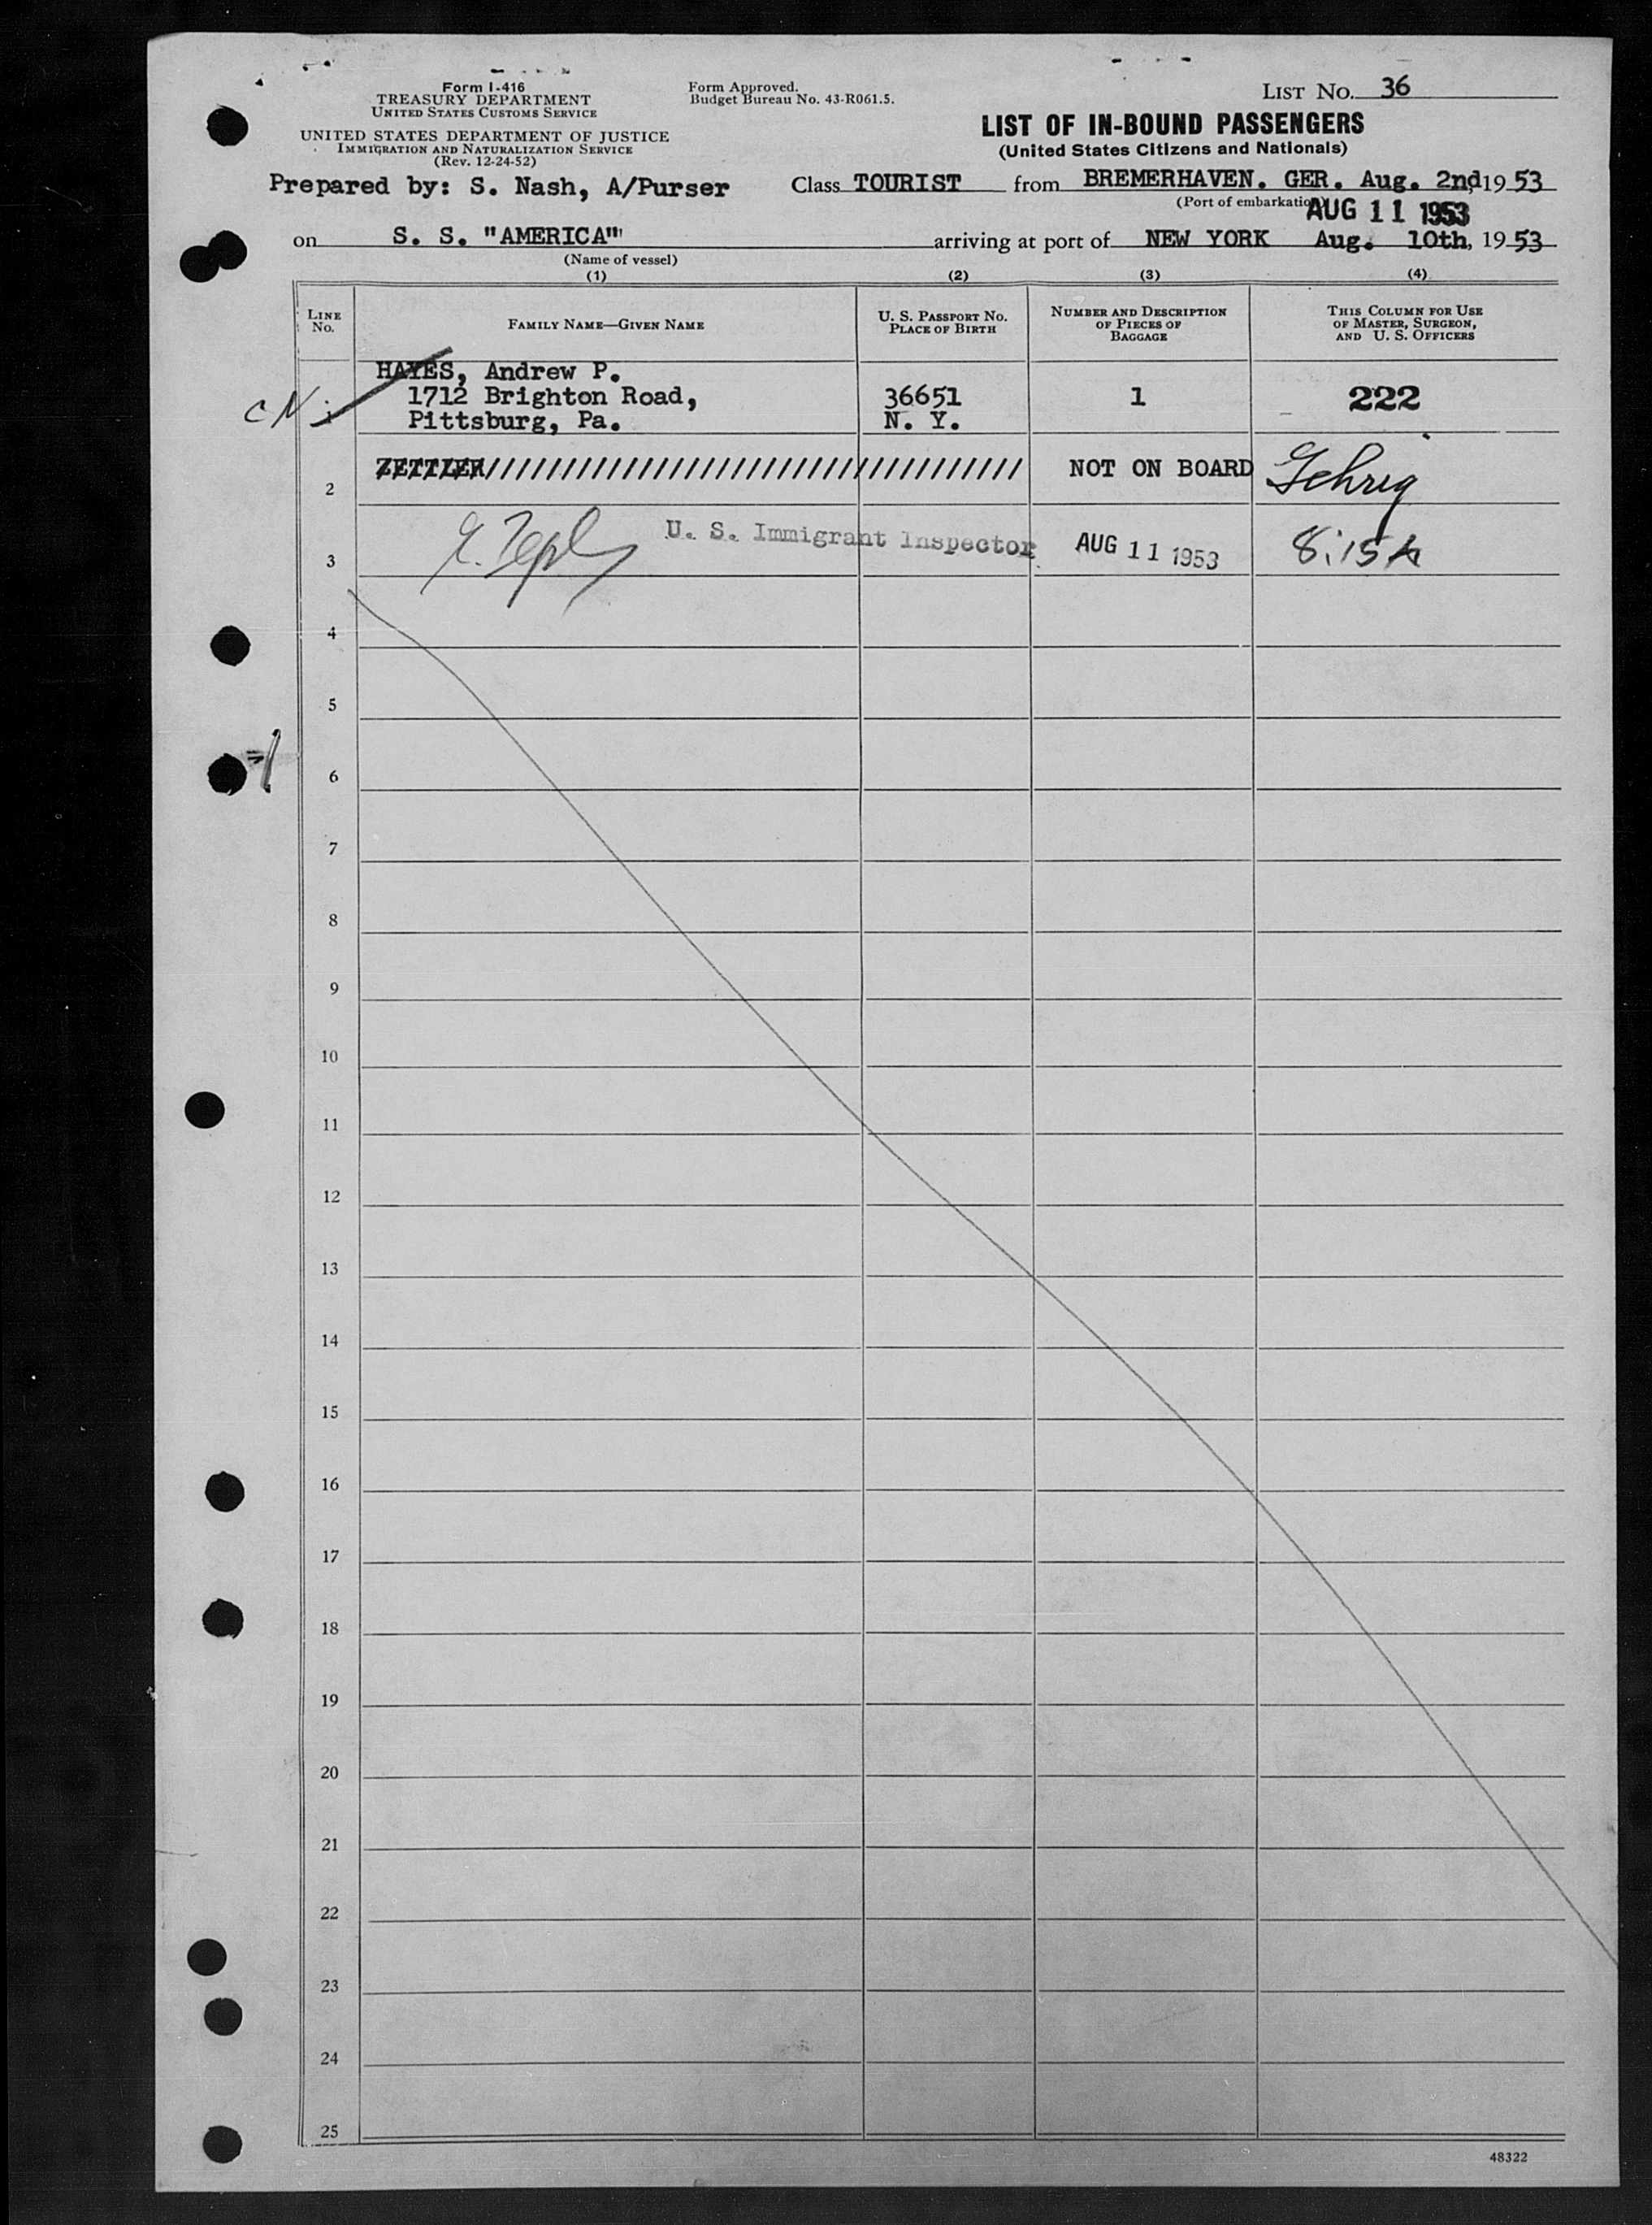 Form I-416
TREASURY DEPARTMENT
UNITED STATES CUSTOMS SERVICE
UNITED STATES DEPARTMENT OF JUSTICE
IMMIGRATION AND NATURALIZATION SERVICE
(Rev. 12-24-52)
Form Approved.
Budget Bureau No. 43-R061.5.
LIST No. 36
LIST OF IN-BOUND PASSENGERS
(United States Citizens and Nationals)
Prepared by: S. Nash, A/Purser Class TOURIST from BREMERHAVEN. GER. Aug. 2nd, 19 53
(Port of embarkation)
AUG 11 1953
on S. S. "AMERICA" arriving at port of NEW YORK Aug. 10th, 19 53
(Name of vessel)
(1) (2) (3) (4)
LINE No. FAMILY NAME—GIVEN NAME U. S. PASSPORT No. PLACE OF BIRTH NUMBER AND DESCRIPTION OF PIECES OF BAGGAGE THIS COLUMN FOR USE OF MASTER, SURGEON, AND U. S. OFFICERS
HAYES, Andrew P.
cN 1712 Brighton Road, 36651 1 222
Pittsburg, Pa. N. Y.
2 ZETTLER//////////////////////////////////// NOT ON BOARD Gehrig
3 U. S. Immigrant Inspector AUG 11 1953 8:15 A
4
5
6
7
8
9
10
11
12
13
14
15
16
17
18
19
20
21
22
23
24
25
48322